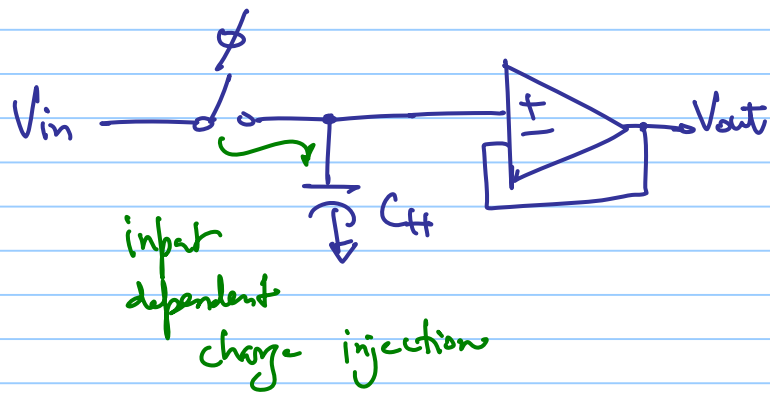 ϕ
Vin
+
−
Vout
CH
input
dependent
charge injection